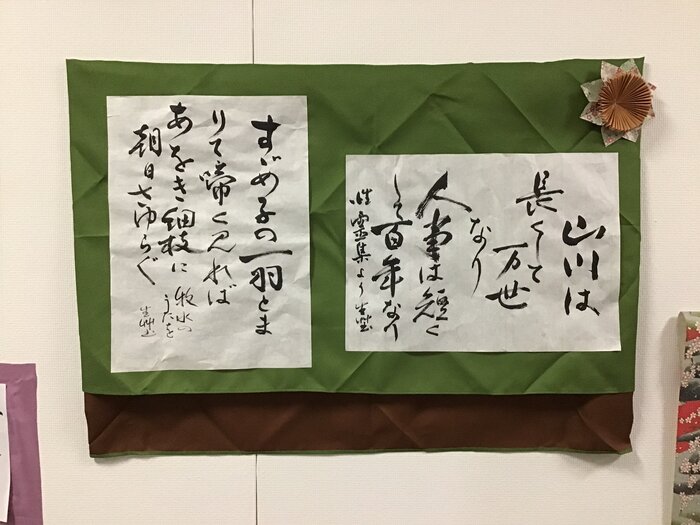 山川は
長くして
万世
なり
人事は短く
して百年なり
性霊集より
すゞめ子の一羽とま
りて啼く見れば
あをき細枝に
朝日さゆらぐ
牧水の
うたを